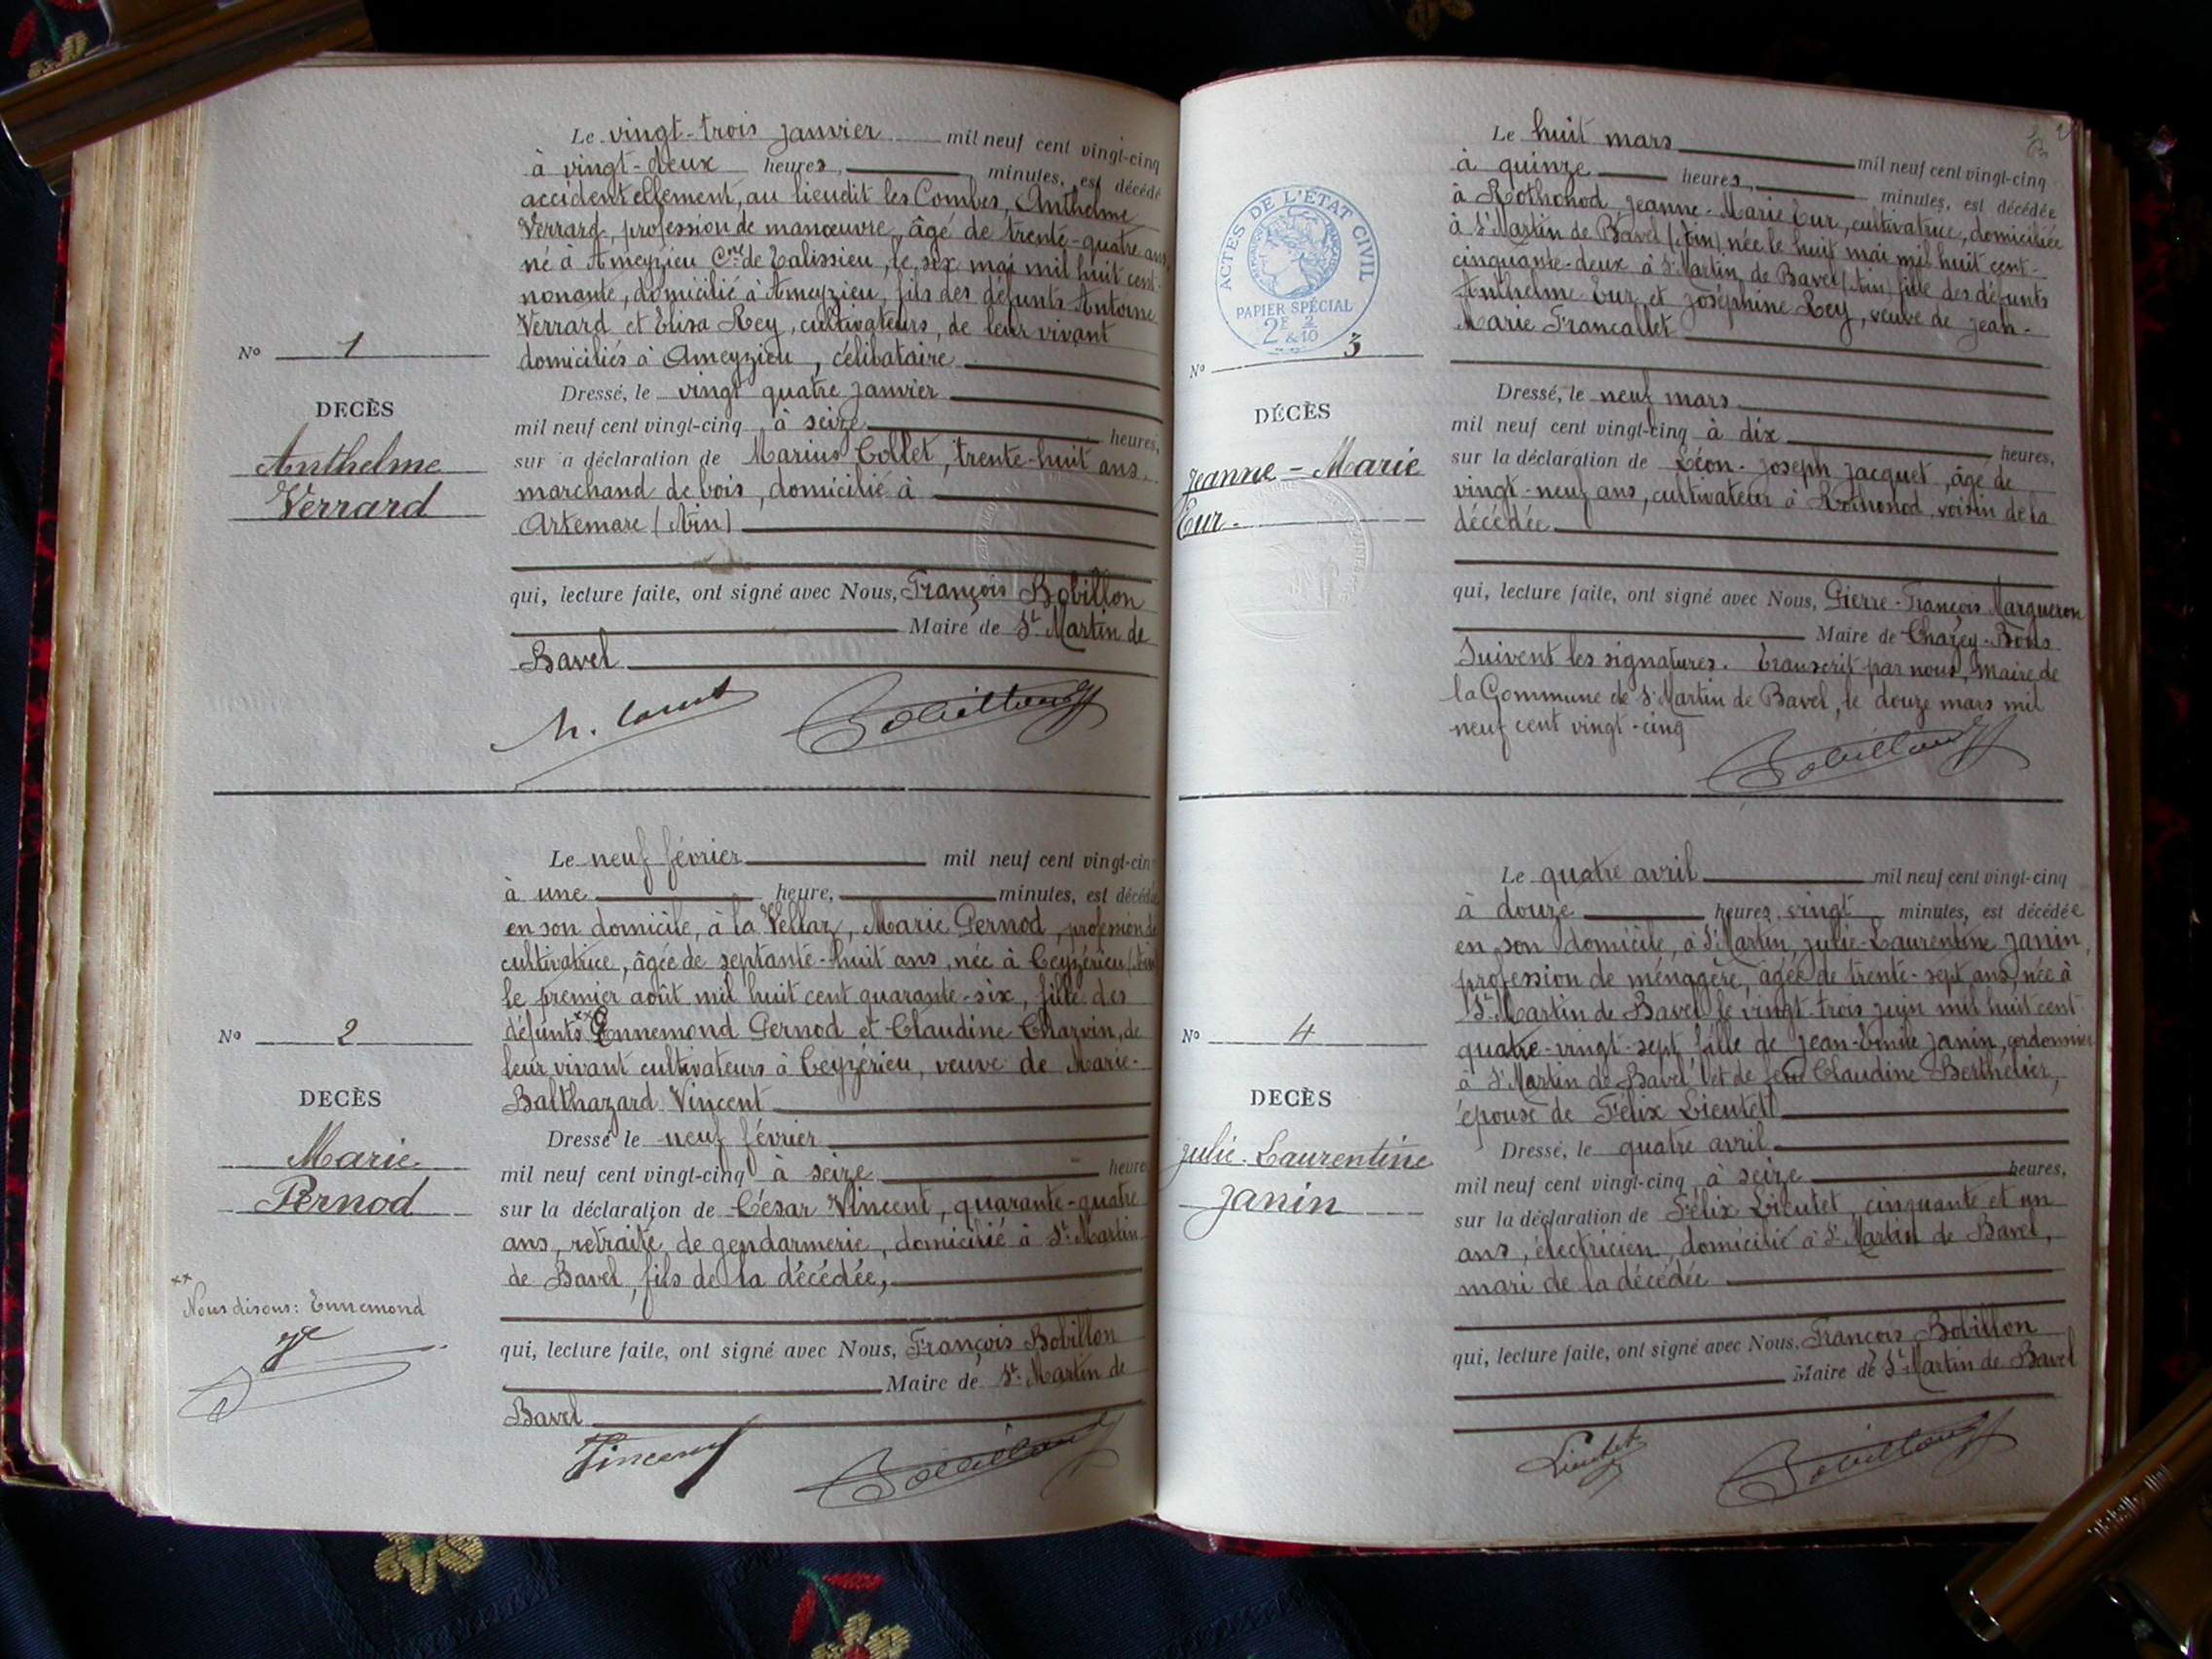 Le vingt-trois janvier mil neuf cent vingt-cinq
à vingt-deux heures, minutes, est décédé
accidentellement, au lieudit les Combes, Anthelme
Verrard, profession de manœuvre, âgé de trente-quatre ans,
né à Ameyzieu Cne de Talissieu, le six mai mil huit cent
nonante, domicilié à Ameyzieu, fils des défunts Antoine
Verrard et Elisa Rey, cultivateurs, de leur vivant
domiciliés à Ameyzieu, célibataire
No 1
DECÈS
Anthelme
Verrard
Dressé, le vingt quatre janvier
mil neuf cent vingt-cinq à seize heures,
sur a déclaration de Marius Collet, trente-huit ans,
marchand de bois, domicilié à
Artemare (Ain)
qui, lecture faite, ont signé avec Nous, François Bobillon
Maire de St Martin de
Bavel
Le neuf février mil neuf cent vingt-cin
à une heure, minutes, est décédée
en son domicile, à la Vellaz, Marie Pernod, profession de
cultivatrice, âgée de septante-huit ans, née à Ceyzérieu (Ain
le premier août mil huit cent quarante-six, fille des
défunts xx Ennemond Pernod et Claudine Charvin, de
leur vivant cultivateurs à Ceyzérieu, veuve de Marie-
Balthazard Vincent
No 2
DECÈS
Marie
Pernod
Dressé le neuf février
mil neuf cent vingt-cinq à seize heure
sur la déclaration de César Vincent, quarante-quatre
ans, retraité de gendarmerie, domicilié à St Martin
de Bavel, fils de la décédée,
xx
Nous disons: Ennemond
qui, lecture faite, ont signé avec Nous, François Bobillon
Maire de St Martin de
Bavel
Vincent
Bobillon
Le huit mars mil neuf cent vingt-cinq
à quinze heures, minutes, est décédée
à Rothonod Jeanne-Marie Eur, cultivatrice, domiciliée
à St Martin de Bavel (Ain) née le huit mai mil huit cent-
cinquante-deux à St Martin de Bavel (Ain) fille des défunts
Anthelme Eur et Joséphine Rey, veuve de Jean-
Marie Francallet
ACTES DE L'ÉTAT CIVIL
PAPIER SPÉCIAL
2F 2/10
&
No 3
DÉCÈS
Jeanne-Marie
Eur.
Dressé, le neuf mars
mil neuf cent vingt-cinq à dix heures,
sur la déclaration de Léon-Joseph Jacquet, âgé de
vingt-neuf ans, cultivateur à Rothonod, voisin de la
décédée
qui, lecture faite, ont signé avec Nous, Pierre-François Margueron
Maire de Chazey-Bons
Suivent les signatures. Transcrit par nous, Maire de
la Commune de St Martin de Bavel, le douze mars mil
neuf cent vingt-cinq
Bobillon
Le quatre avril mil neuf cent vingt-cinq
à douze heures, vingt minutes, est décédée
en son domicile, à St Martin, Julie-Laurentine Janin,
profession de ménagère, âgée de trente-sept ans, née à
St Martin de Bavel le vingt-trois juin mil huit cent
quatre-vingt-sept fille de Jean-Emile Janin, cordonnier
à St Martin de Bavel et de feue Claudine Berthelier,
épouse de Félix Lieutet
No 4
DECÈS
Julie-Laurentine
Janin
Dressé, le quatre avril
mil neuf cent vingt-cinq à seize heures,
sur la déclaration de Félix Lieutet, cinquante et un
ans, électricien, domicilié à St Martin de Bavel,
mari de la décédée
qui, lecture faite, ont signé avec Nous, François Bobillon
Maire de St Martin de Bavel
Lieutet
Bobillon